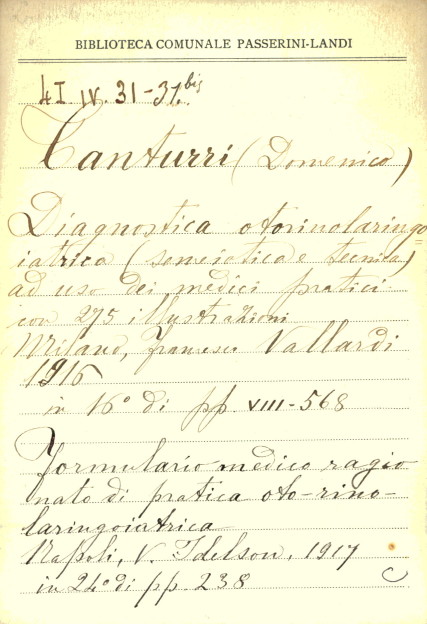 BIBLIOTECA COMUNALE PASSERINI-LANDI
4I IV. 31-31.bis
Tanturri (Domenico)
Diagnostica otorinolaringo=
iatrica (semeiotica e tecnica)
ad uso dei medici pratici
con 275 illustrazioni
Milano, Francesco Vallardi
1916
in 16° di pp. VIII-568
Formulario medico ragio
nato di pratica oto-rino-
laringoiatrica
Napoli, V. Idelson, 1917
in 24° di pp. 238
C